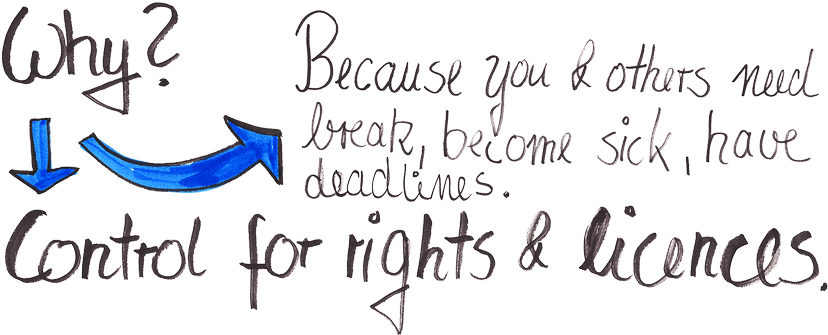 Why?
Because you & others need
break, become sick, have
deadlines.
Control for rights & licences.